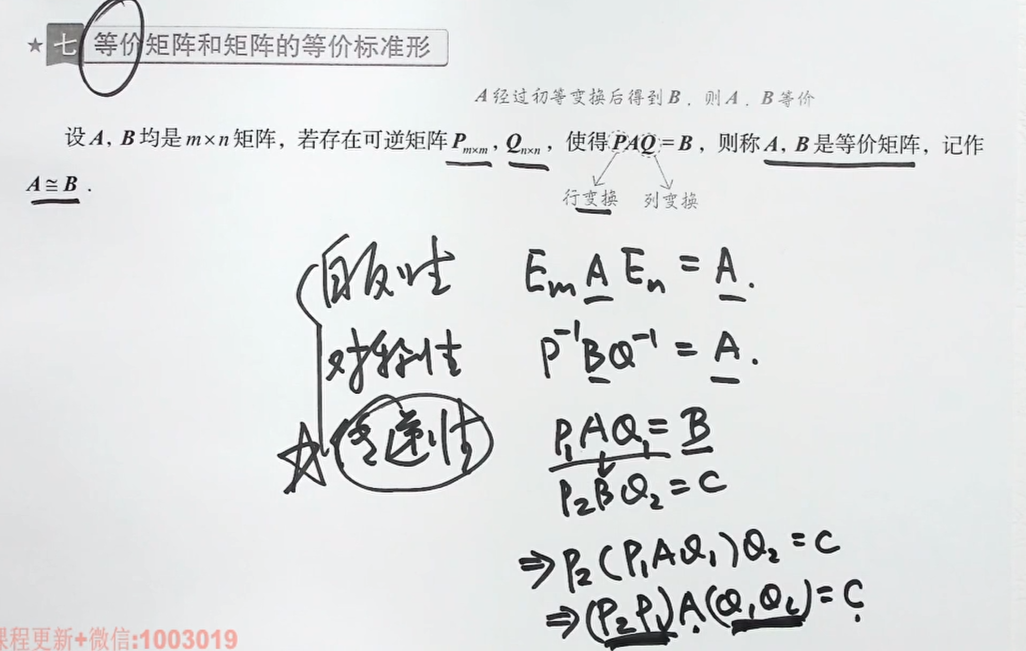 ★ 七 等价矩阵和矩阵的等价标准形
A经过初等变换后得到B，则A，B等价
设A，B均是m×n矩阵，若存在可逆矩阵Pₘₓₘ，Qₙₓₙ，使得PAQ=B，则称A，B是等价矩阵，记作
A≅B．
行变换 列变换
自反性 EₘAEₙ = A.
对称性 P⁻¹BQ⁻¹ = A.
☆ 传递性 P₁AQ₁ = B
P₂BQ₂ = C
⇒ P₂(P₁AQ₁)Q₂ = C
⇒ (P₂P₁)A(Q₁Q₂) = C
课程更新+微信:1003019